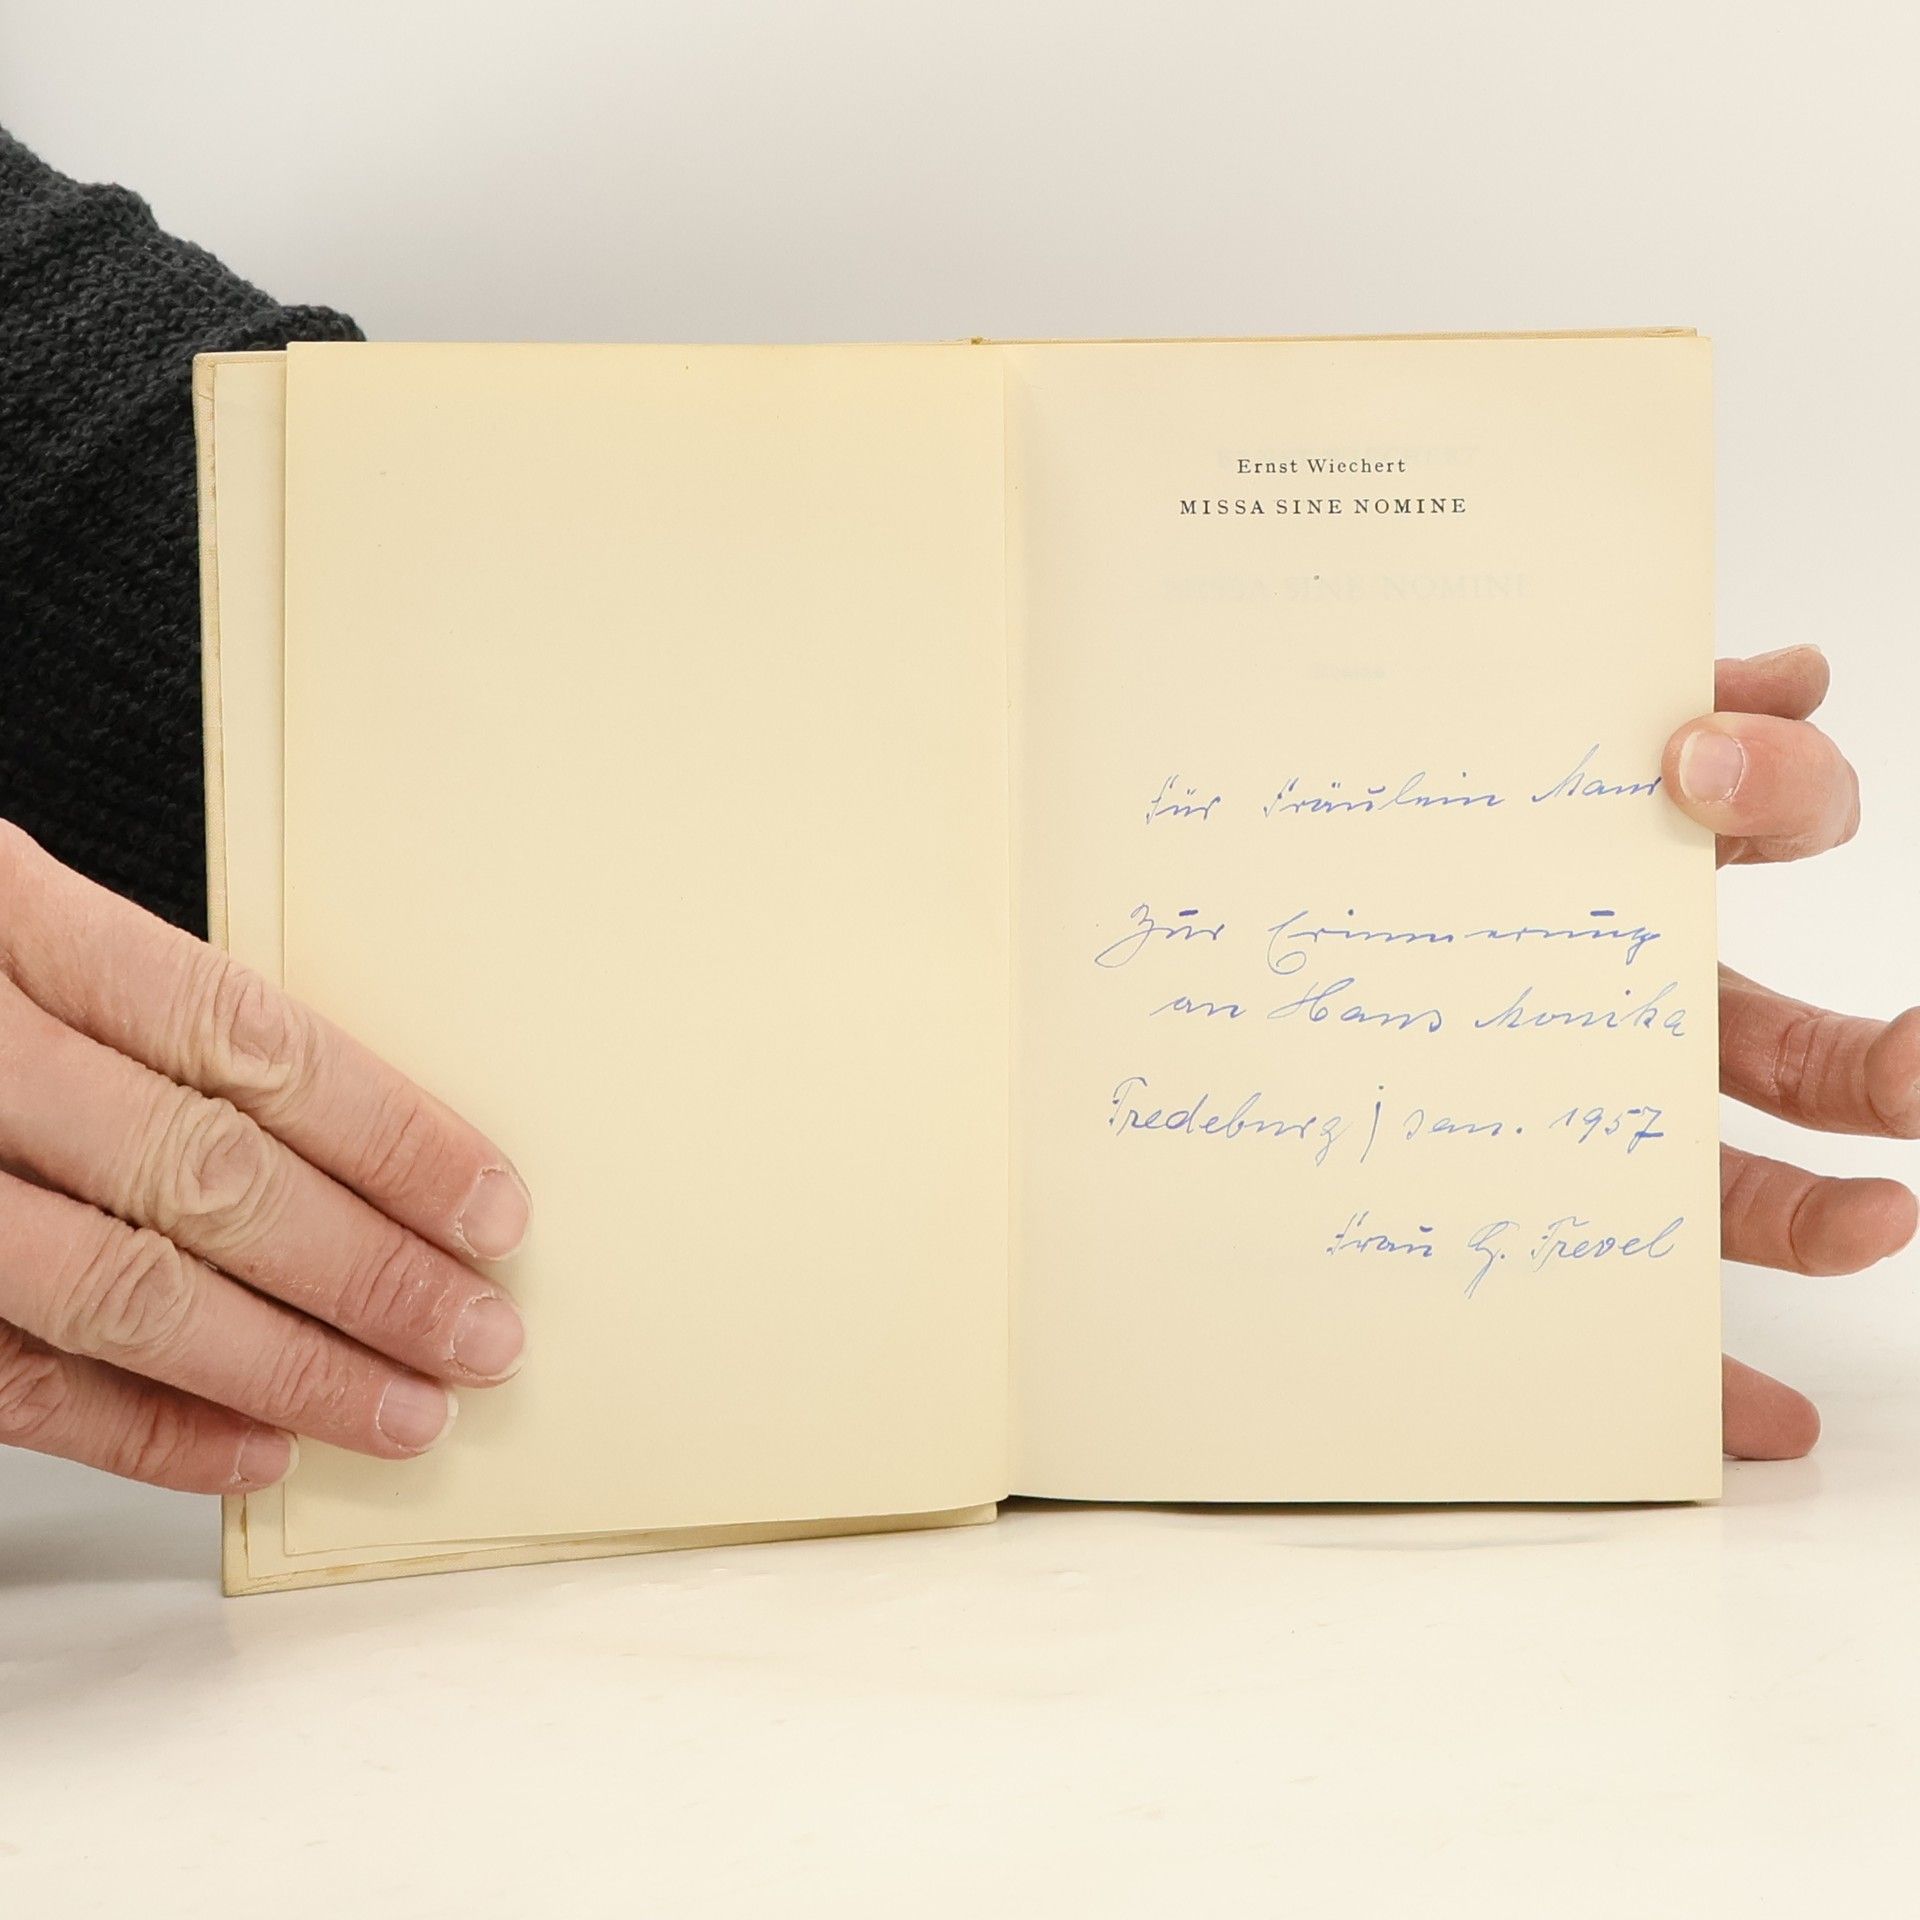 Ernst Wiechert
MISSA SINE NOMINE
Für Fräulein Maur
Zur Erinnerung
an Haus Monika
Fredeburg, Jan. 1957
Frau G. Trevel